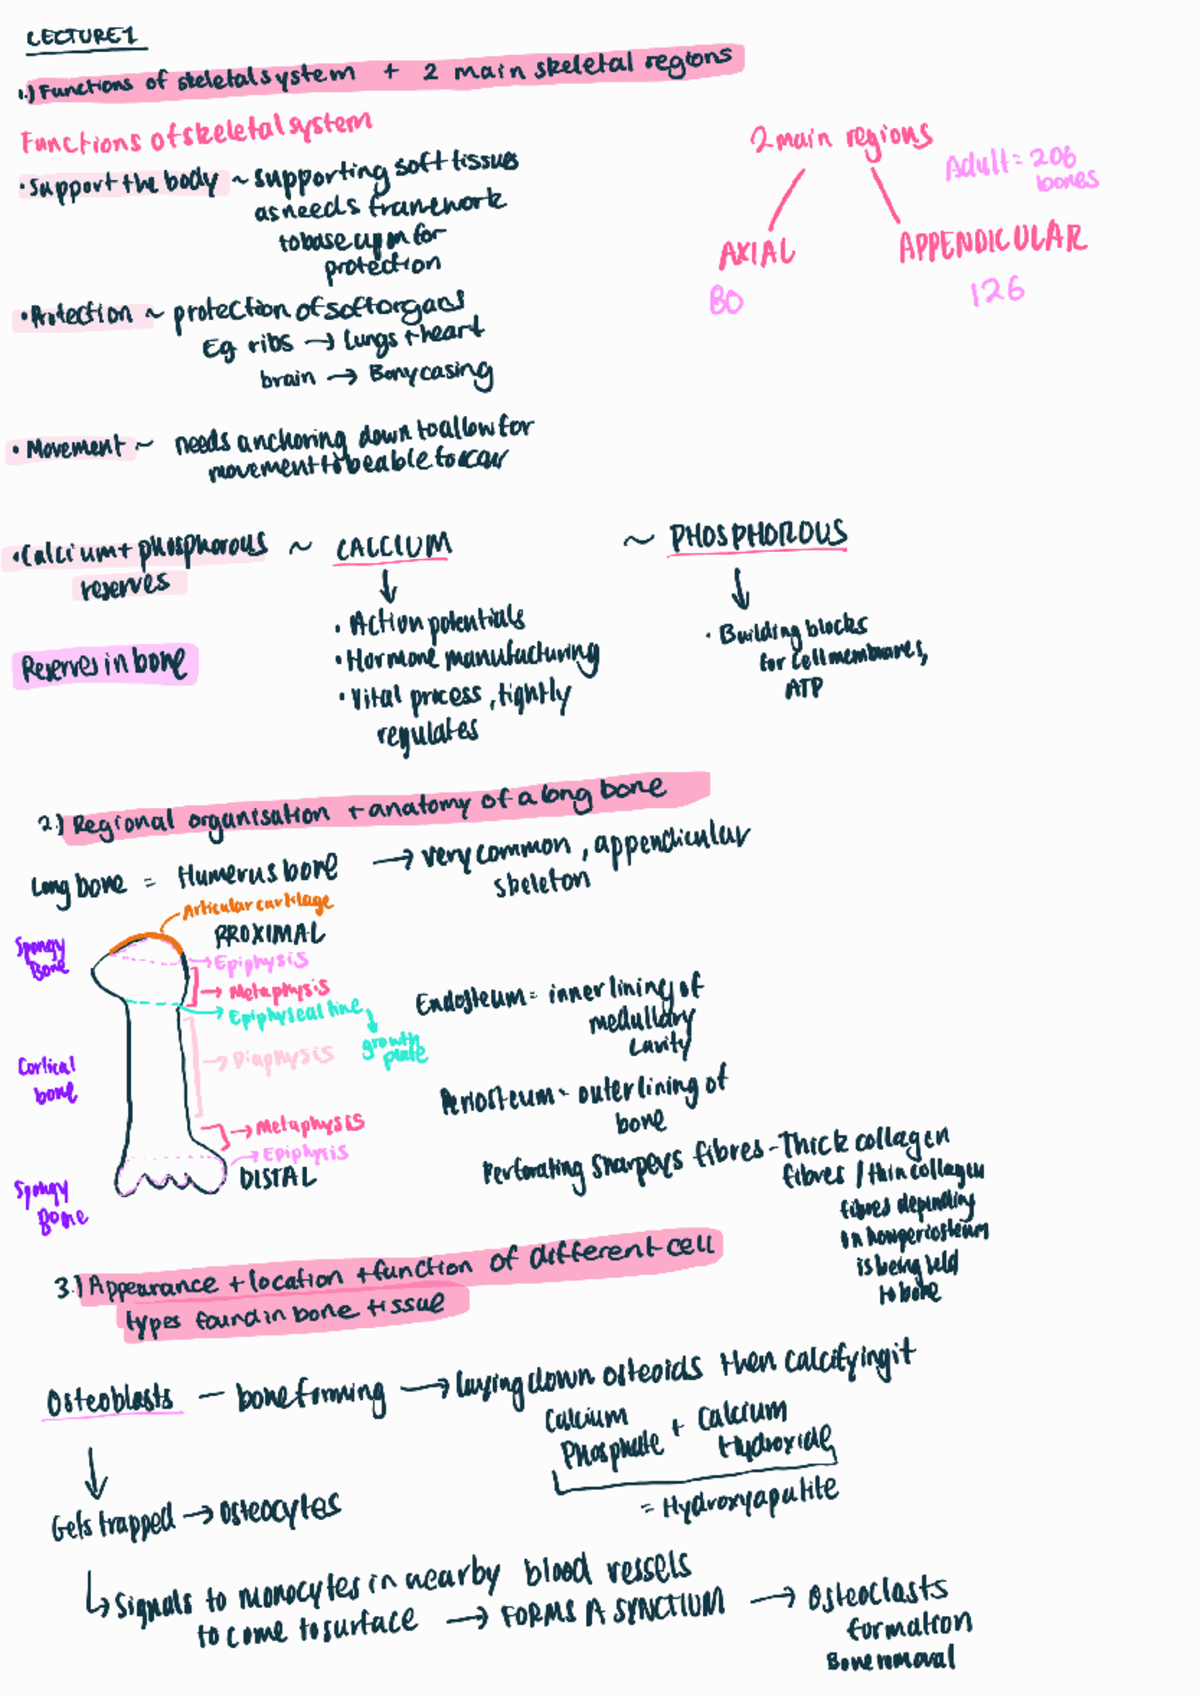 LECTURE 1
1.) Functions of skeletal system + 2 main skeletal regions
Functions of skeletal system
• Support the body ~ supporting soft tissues
as needs framework
to base upon for
protection
• Protection ~ protection of soft organs
Eg ribs → lungs + heart
brain → Bony casing
• Movement ~ needs anchoring down to allow for
movement to be able to occur
2 main regions
Adult = 206
bones
AXIAL
80
APPENDICULAR
126
• Calcium + phosphorous
reserves
~ CALCIUM
↓
• Action potentials
• Hormone manufacturing
• Vital process, tightly
regulates
~ PHOSPHOROUS
↓
• Building blocks
for cell membranes,
ATP
Reserves in bone
2.) Regional organisation + anatomy of a long bone
Long bone = Humerus bone → very common, appendicular
skeleton
Articular cartilage
PROXIMAL
Spongy
Bone
→ Epiphysis
→ Metaphysis
→ Epiphyseal line
growth
plate
→ Diaphysis
Cortical
bone
→ Metaphysis
→ Epiphysis
DISTAL
Spongy
Bone
Endosteum = inner lining of
medullary
cavity
Periosteum = outer lining of
bone
Perforating sharpeys fibres - Thick collagen
fibres / thin collagen
fibres depending
on how periosteum
is being held
to bone
3.) Appearance + location + function of different cell
types found in bone tissue
Osteoblasts — bone forming → laying down osteoids then calcifying it
Calcium
Phosphate + Calcium
Hydroxide
= Hydroxyapatite
↓
Gets trapped → Osteocytes
↳ Signals to monocytes in nearby blood vessels
to come to surface → FORMS A SYNCTIUM → Osteoclasts
formation
Bone removal